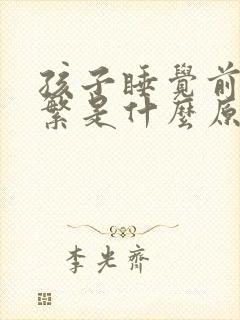 孩子睡覺前
繁是什麼原
李光齊